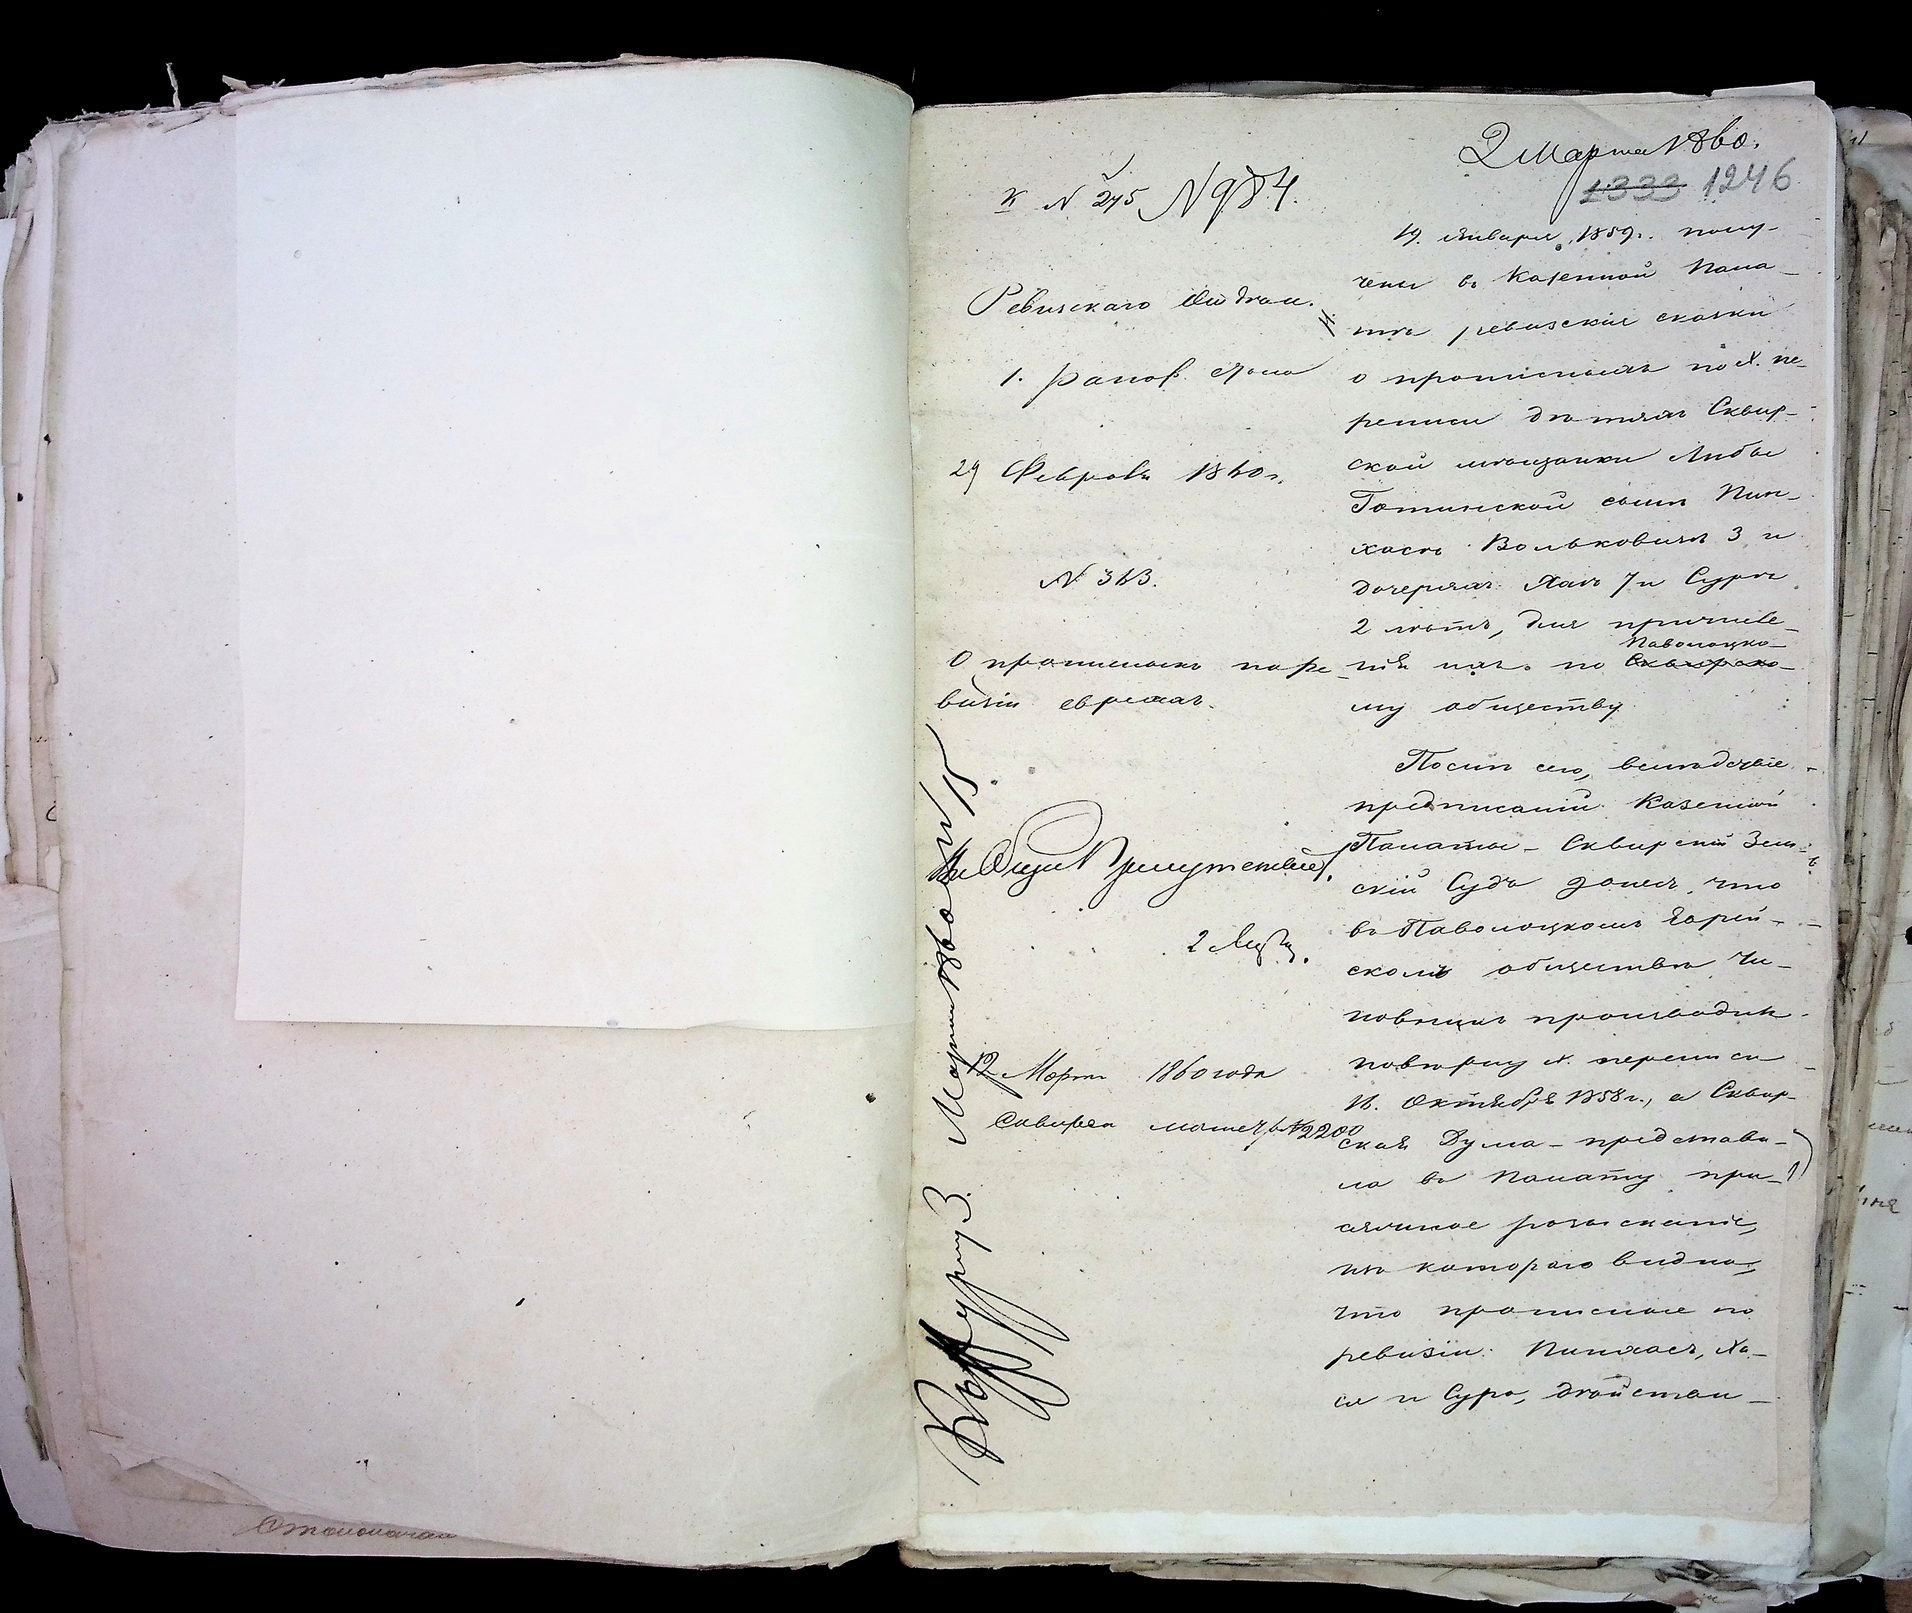 2 Марта 1860.
1333 1246
к N 275 N 984.
Ревизскаго Отдѣл.
1. Стола
29 Февраля 1860 г.
N 313.
О прописныхъ по ре-
визіи евреяхъ.
2 Марта
12 Марта 1860 года
N 2200
Марта 1860
19 Января 1859 г. полу-
чены въ Казенной Пала-
тѣ ревизскія сказки
о прописныхъ по X. пе-
реписи дѣтяхъ Сквир-
ской мѣщанки Либы
сынѣ Пин-
хасѣ Вольковичѣ 3 и
дочеряхъ Хаѣ 7 и Сурѣ
2 лѣтъ, для причисле-
нія ихъ по Сквирско- Паволоцко-
му обществу.
Послѣ сего, вслѣдствіе
предписаній Казенной
Палаты – Сквирскій Зем-
скій Судъ донесъ, что
въ Паволоцкомъ Еврей-
скомъ обществѣ чи-
новникъ производилъ
повѣрку X. переписи
16. Октября 1858 г., а Сквир-
ская Дума – представи-
ла въ Палату при-
сяжное розысканіе,
изъ котораго видно,
что прописные по
ревизіи: Пинхасъ, Ха-
я и Сура, дѣйстви-
Столоначал